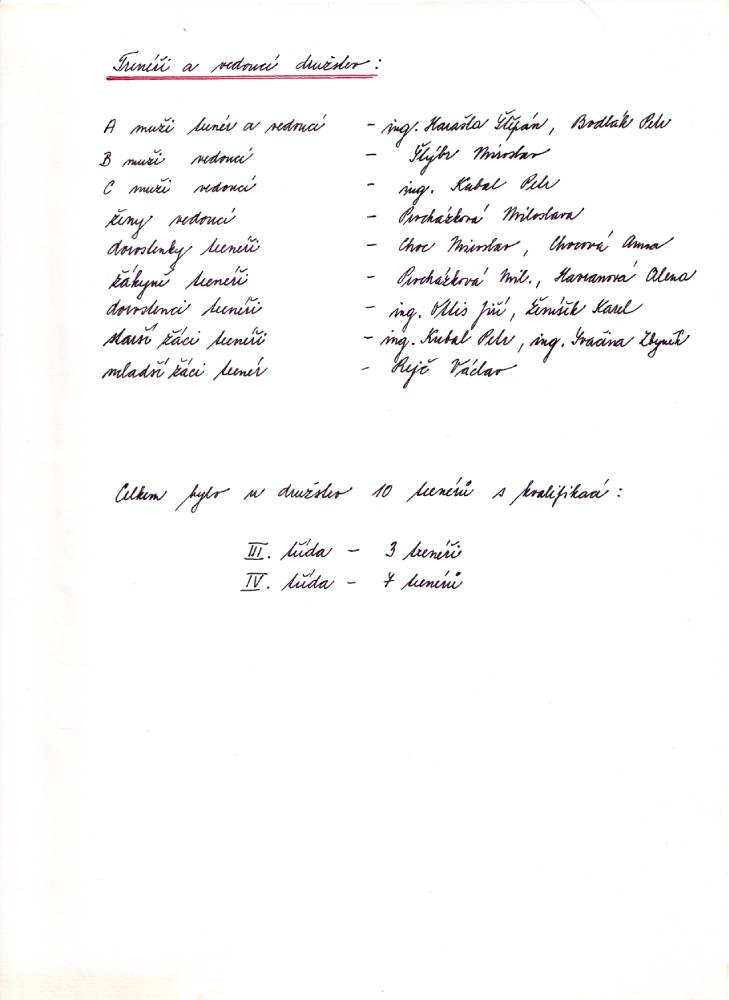 Trenéři a vedoucí družstev :
A muži trenér a vedoucí – ing. Harašta Štěpán, Bodlák Petr
B muži vedoucí – Miroslav
C muži vedoucí – ing. Kubal Petr
ženy vedoucí – Procházková Miloslava
dorostenky trenéři – Choc Miroslav, Chocová Anna
žákyně trenéři – Procházková Mil., Havranová Alena
dorostenci trenéři – ing. Ottis Jiří, Karel
starší žáci trenéři – ing. Kubal Petr, ing. Svačina Zbyněk
mladší žáci trenér – Rejč Václav
Celkem bylo u družstev 10 trenérů s kvalifikací :
III. třída – 3 trenéři
IV. třída – 7 trenérů